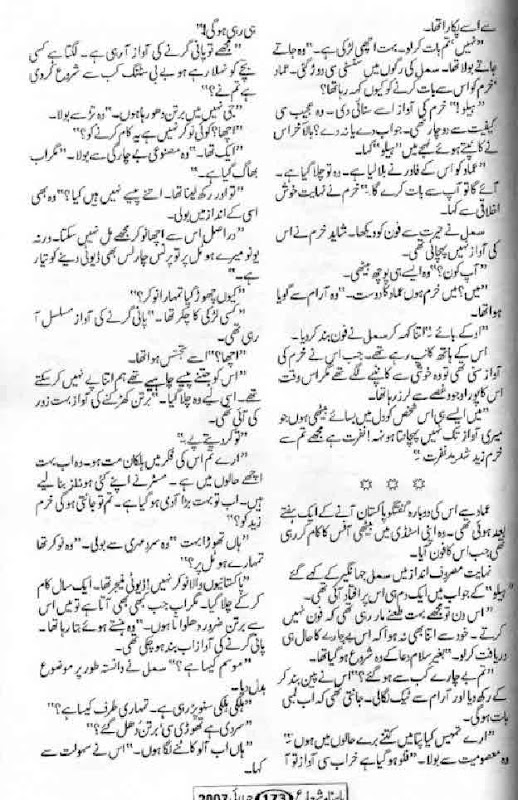 سے اسے پکارا تھا۔
"نہیں، تم بات کر لو۔ بہت اچھی لڑکی ہے۔" وہ جاتے
جاتے بولا تھا۔ سمل کی رگوں میں سنسنی سی دوڑ گئی۔ عماد
خرم کو اس سے بات کرنے کو کیوں کہہ رہا تھا؟
"ہیلو!" خرم کی آواز اسے سنائی دی۔ وہ عجیب سی
کیفیت سے دوچار تھی۔ جواب دے یا نہ دے؟ بالآخر اس
نے کانپتے ہوئے لہجے میں "ہیلو" کہا۔
"عماد کو اس کے فادر نے بلایا ہے۔ وہ تو چلا گیا ہے۔
آئے گا تو آپ سے بات کرے گا۔" خرم نے نہایت خوش
اخلاقی سے کہا۔
سمل نے حیرت سے فون کو دیکھا۔ شاید خرم نے اس
کی آواز نہیں پہچانی تھی۔
"آپ کون؟" وہ ایسے ہی پوچھ بیٹھی۔
"میں؟ میں خرم ہوں عماد کا دوست۔" وہ آرام سے گویا
ہوا تھا۔
"اوکے بائے۔" اتنا کہہ کر سمل نے فون بند کر دیا۔
اس کے ہاتھ کانپ رہے تھے۔ جب اس نے خرم کی
آواز سنی تھی تو وہ خوشی سے کانپنے لگے تھے مگر اس وقت
اس کا پورا وجود غصے سے لرز رہا تھا۔
"میں ایسے ہی اس شخص کو دل میں بسائے بیٹھی ہوں جو
میری آواز تک نہیں پہچانتا ہونہہ! نفرت ہے مجھے تم سے
خرم زید شدید نفرت۔"
☼ ☼ ☼
عماد سے اس کی دوبارہ گفتگو پاکستان آنے کے ایک ہفتے
بعد ہوئی تھی۔ وہ اپنی اسٹڈی میں بیٹھی آفس کا کام کر رہی
تھی جب اس کا فون آیا۔
نہایت مصروف انداز میں سمل جہانگیر کے کہے گئے
"ہیلو" کے جواب میں ایک دم ہی اس پر افتاد آئی تھی۔
"اس دن تو مجھے بہت طعنے مار رہی تھی کہ فون نہیں
کرتے۔ خود سے اتنا بھی نہ ہوا کہ اس بے چارے کا حال ہی
دریافت کر لو۔" بغیر سلام دعا کے وہ شروع ہو گیا تھا۔
"تم بے چارے کب سے ہو گئے؟" اس نے پین بند کر
کے رکھ دیا اور آرام سے ٹیک لگا لی۔ جانتی تھی کہ اب لمبی
بات ہو گی۔
"ارے تمہیں کیا پتا میں کتنے برے حالوں میں ہوں۔"
وہ معصومیت سے بولا۔ "فلو ہو گیا ہے خراب سی آواز تو آ
ہی رہی ہو گی!"
"مجھے تو پانی گرنے کی آواز آ رہی ہے۔ لگتا ہے کسی
بچے کو نہلا رہے ہو بے بی سٹنگ کب سے شروع کر دی
ہے تم نے؟"
"جی نہیں میں برتن دھو رہا ہوں۔" وہ تڑ سے بولا۔
"اچھا؟ کوئی نوکر نہیں ہے یہ کام کرنے کو؟"
"ایک تھا۔" وہ مصنوعی بے چارگی سے بولا۔ "مگر اب
بھاگ گیا ہے۔"
"تو اور رکھ لینا تھا۔ اتنے پیسے نہیں ہیں کیا؟" وہ بھی
اسی کے انداز میں بولی۔
"دراصل اس سے اچھا نوکر مجھے مل نہیں سکتا۔ ورنہ
یو نو میرے ہوٹل پر تو پرنس چارلس بھی ڈیوٹی دینے کو تیار
ہے۔"
"کیوں چھوڑ گیا تمہارا نوکر؟"
"کسی لڑکی کا چکر تھا۔" پانی گرنے کی آواز مسلسل آ
رہی تھی۔
"اچھا؟" اسے تجسس ہوا تھا۔
"اس کو جتنے پیسے چاہیے تھے ہم اتنا پے نہیں کر سکتے
تھے۔ اسی لیے وہ چلا گیا۔" برتن کھڑکنے کی آواز بہت زور
کی آئی تھی۔
"تو کر دیتے پے۔"
"ارے تم اس کی فکر میں ہلکان مت ہو۔ وہ اب بہت
اچھے حالوں میں ہے۔ مسٹر نے اپنے کئی ہوٹلز بنا لیے
ہیں۔ اب تو بہت بڑا آدمی ہو گیا ہے۔ تم تو جانتی ہو گی خرم
زید کو؟"
"ہاں تھوڑا بہت" وہ سرد مہری سے بولی۔ "وہ نوکر تھا
تمہارے ہوٹل پر؟"
"پاکستانیوں والا نوکر نہیں! ڈیوٹی منیجر تھا۔ ایک سال کام
کر کے چلا گیا۔ مگر اب جب بھی کبھی آتا ہے تو میں اس
سے برتن ضرور دھلواتا ہوں۔" وہ ہنستے ہوئے بتا رہا تھا۔
پانی گرنے کی آواز اب بند ہو چکی تھی۔
"موسم کیسا ہے؟" سمل نے دانستہ طور پر موضوع
بدل دیا۔
"ہلکی ہلکی سنو پڑ رہی ہے۔ تمہاری طرف کیسا ہے؟"
"سردی ہے تھوڑی سی! برتن دھل گئے؟"
"ہاں اب آلو کاٹنے لگا ہوں۔" اس نے سہولت سے
کہا۔
ماہنامہ شعاع 173 جولائی 2007